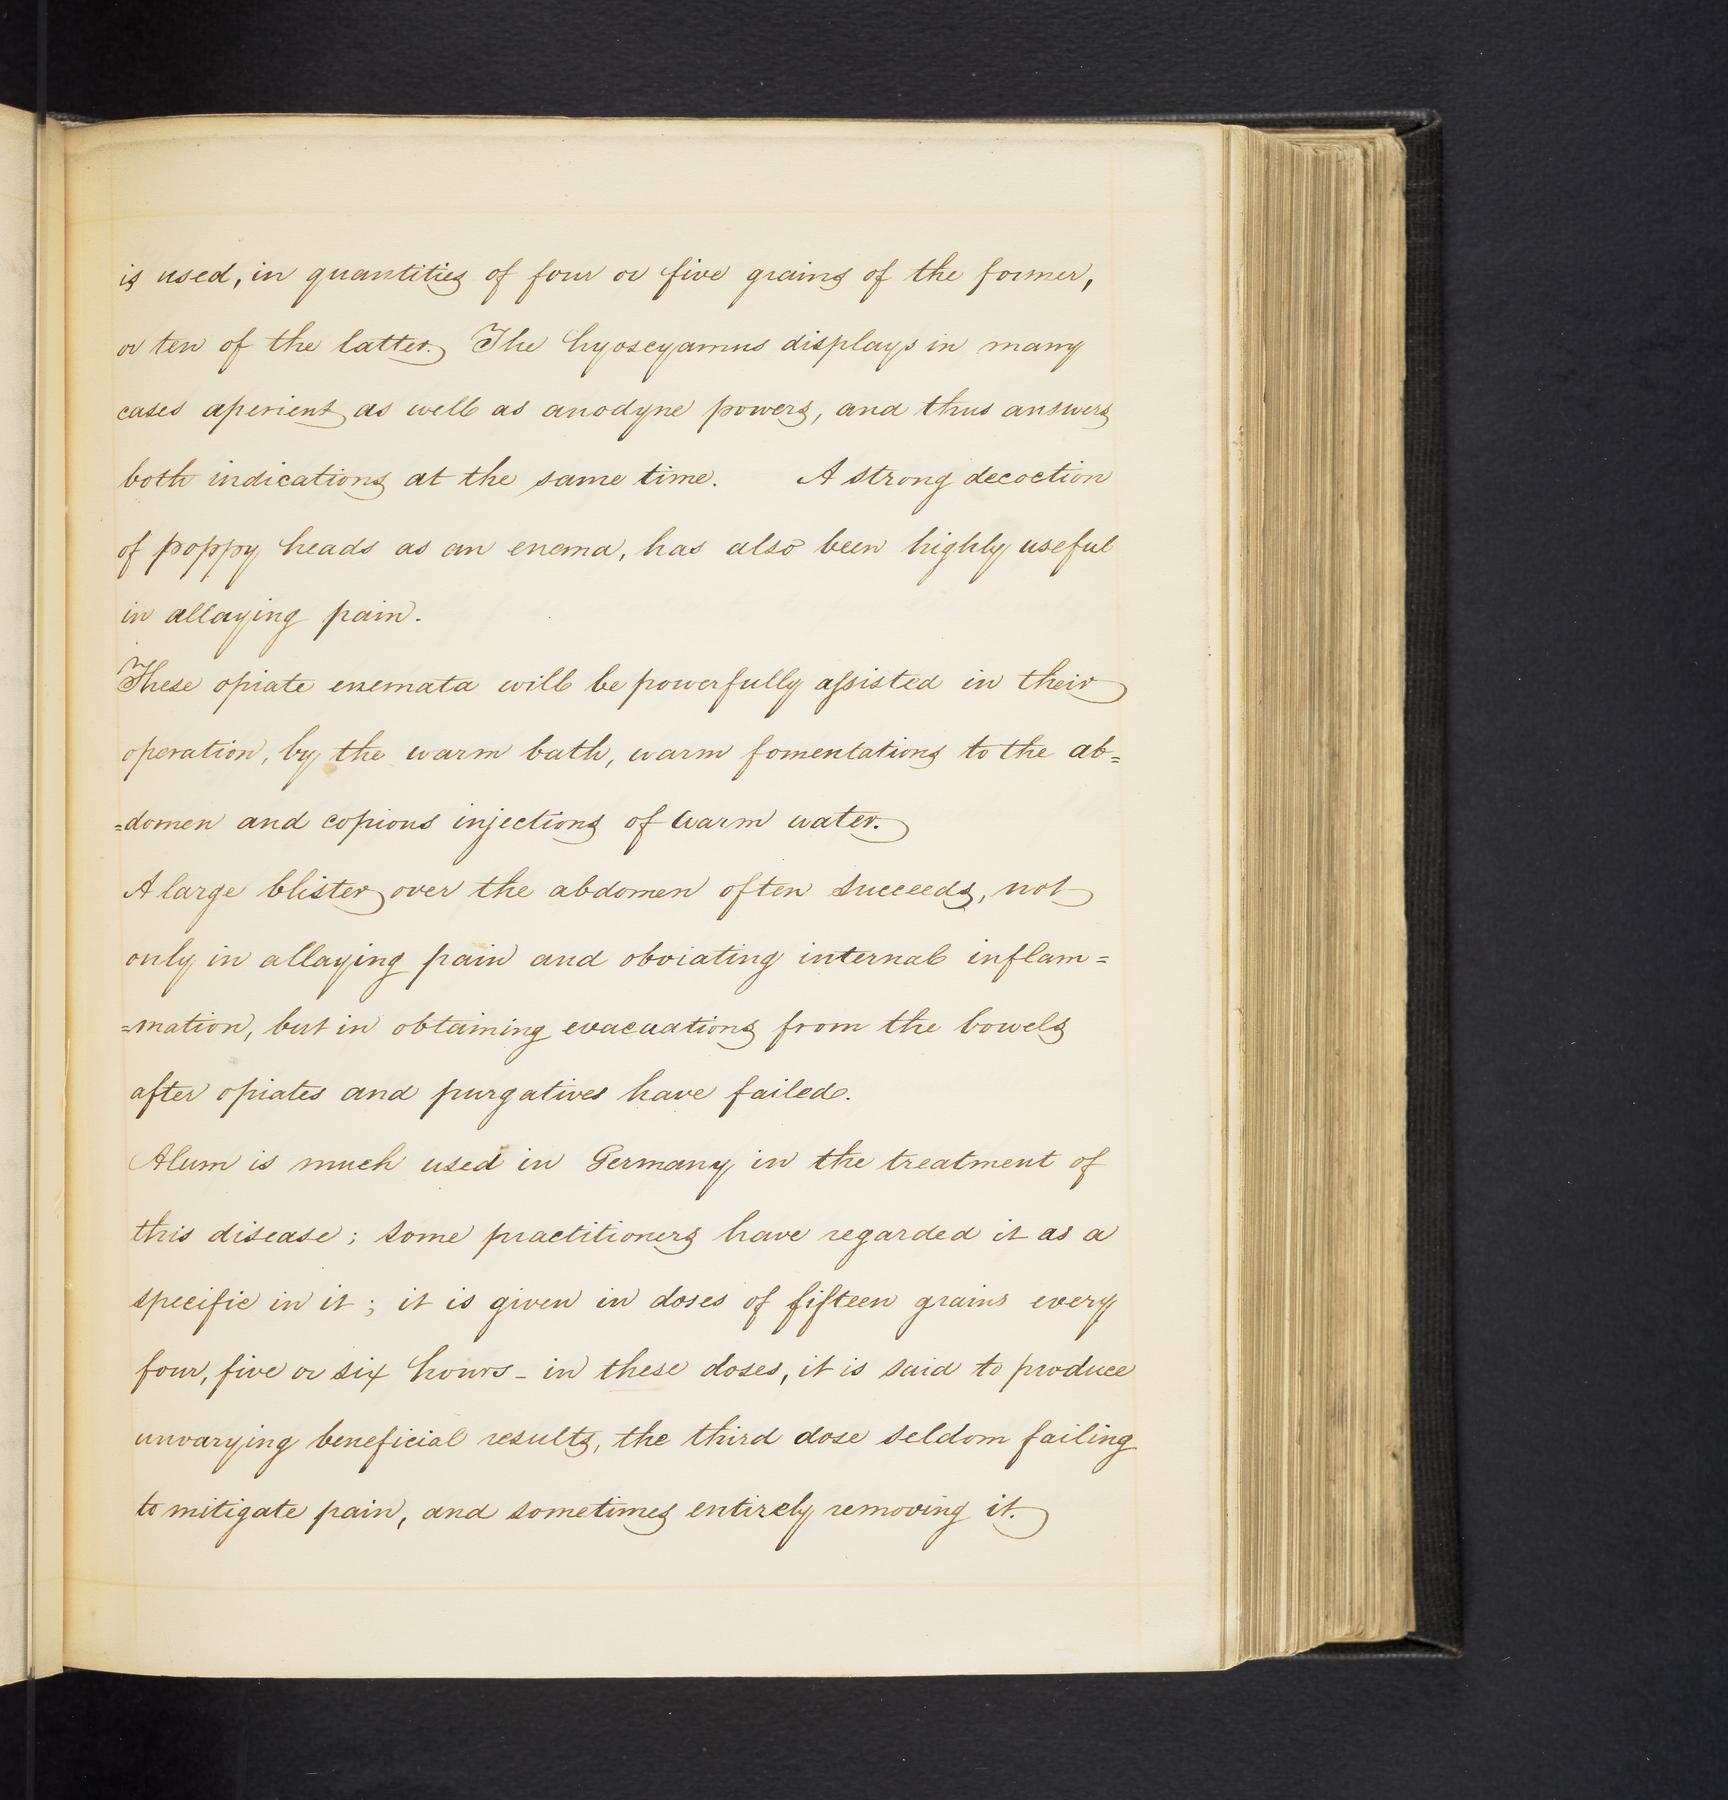 is used, in quantities of four or five grains of the former,
or ten of the latter. The hyoscyamus displays in many
cases aperient as well as anodyne powers, and thus answers
both indications at the same time. A strong decoction
of poppy heads as an enema, has also been highly useful
in allaying pain.
These opiate enemata will be powerfully assisted in their
operation, by the warm bath, warm fomentations to the ab=
=domen and copious injections of warm water.
A large blister over the abdomen often succeeds, not
only in allaying pain and obviating internal inflam=
=mation, but in obtaining evacuations from the bowels
after opiates and purgatives have failed.
Alum is much used in Germany in the treatment of
this disease; some practitioners have regarded it as a
specific in it; it is given in doses of fifteen grains every
four, five or six hours - in these doses, it is said to produce
unvarying beneficial results, the third dose seldom failing
to mitigate pain, and sometimes entirely removing it.